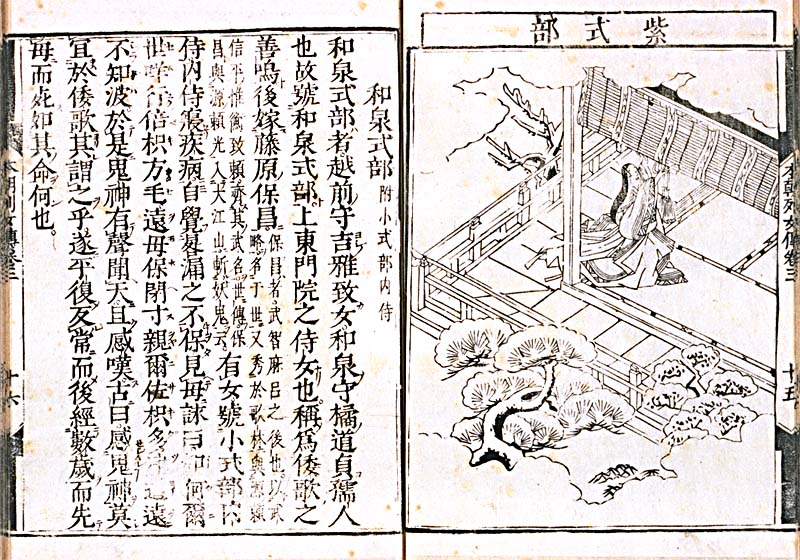 紫式部
本朝列女傳卷三 十五
和泉式部 附小式部内侍
和泉式部者越前守吉雅致女和泉守橘道貞孺人
也故號和泉式部上東門院之侍女也稱爲倭歌之
善鳴後嫁藤原保昌
保昌者武智麻呂之後也以武
略名于世又秀於歌林與源頼
信平惟衡致頼齊其武名世傳保
昌與源頼光入大江山斬妖鬼云
有女號小式部内
侍内侍寢疾病自覺漏之不保見毋詠曰何爾
世行信枳方毛遠毋保閉寸親爾佐枳多道遠
不知波於是鬼神有聲聞天且感嘆古曰感鬼神莫
宜於倭歌其謂之乎遂平復反常而後經數歳而先
毋而死如其命何也
本朝列女傳卷三 十六